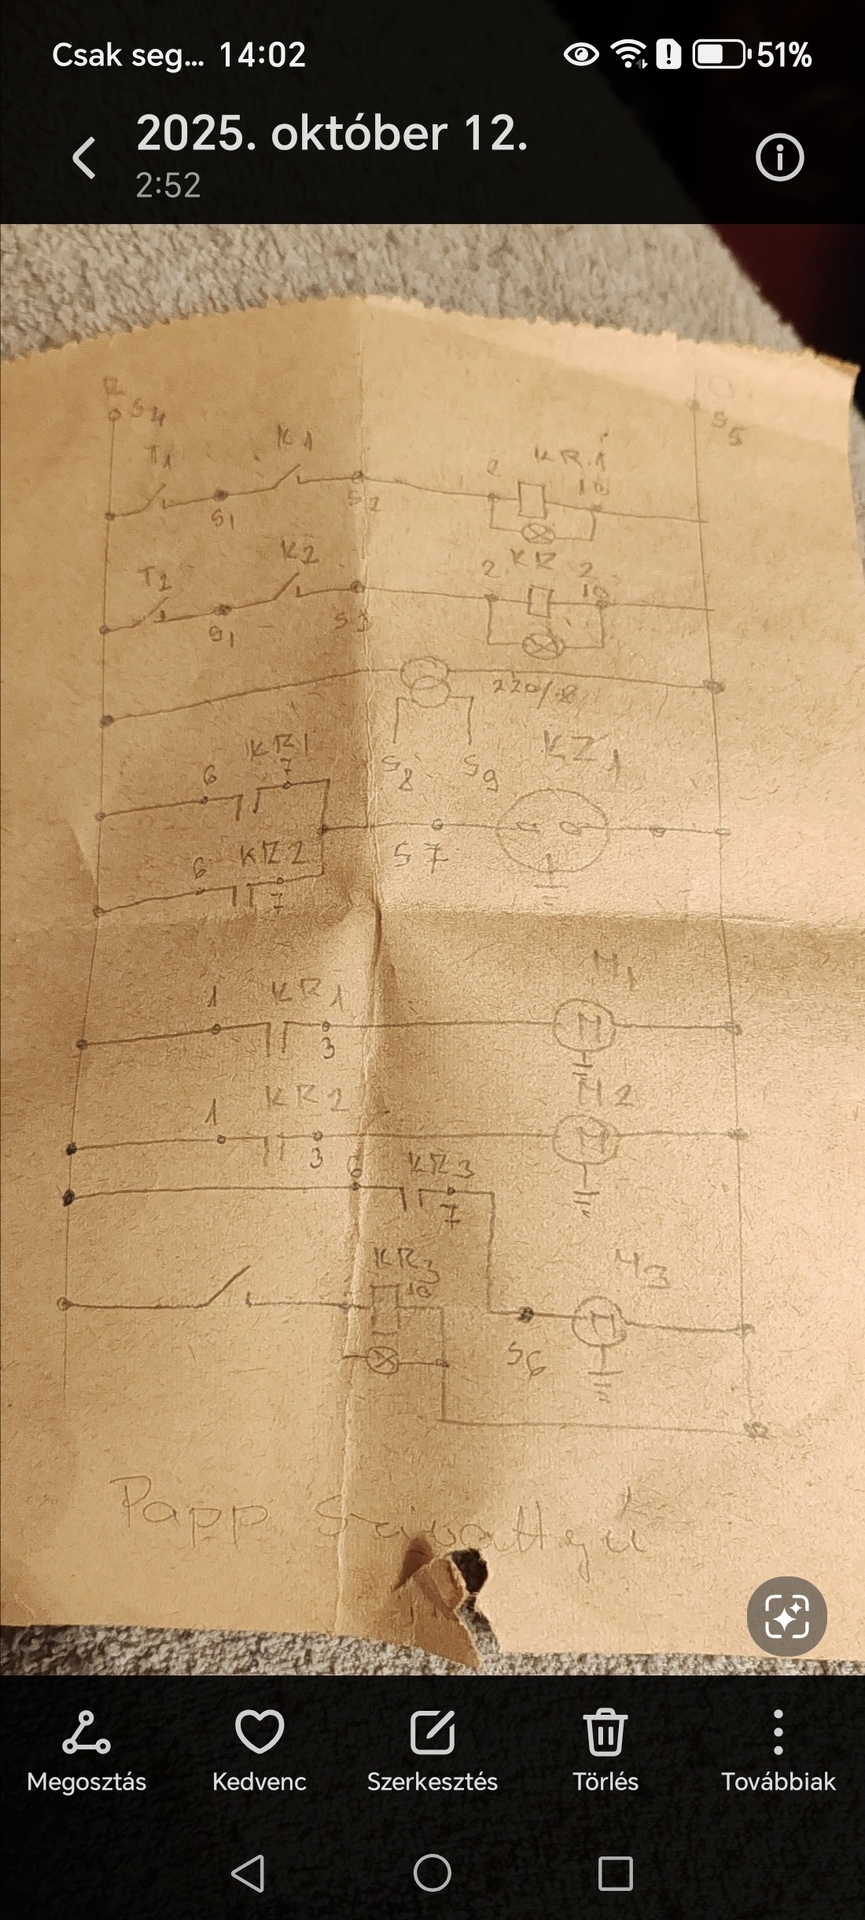 Csak seg... 14:02 51%
2025. október 12.
2:52
R
S4
S5
T1 K1 KR1
S1 S2 2 10
T2 K2 KR 2
S1 S3 2 10
220/8
S8 S9
KR1 KZ1
6 7
S7
KR2
6 7
M1
1 KR1 3
M
M2
1 KR2 3
M
6 KR3 7
KR3 M3
10
M
S6
Papp
Megosztás Kedvenc Szerkesztés Törlés Továbbiak